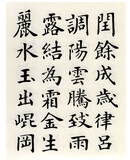 閏餘成歲律呂
調陽雲騰致雨
露結為霜金生
麗水玉出崐岡